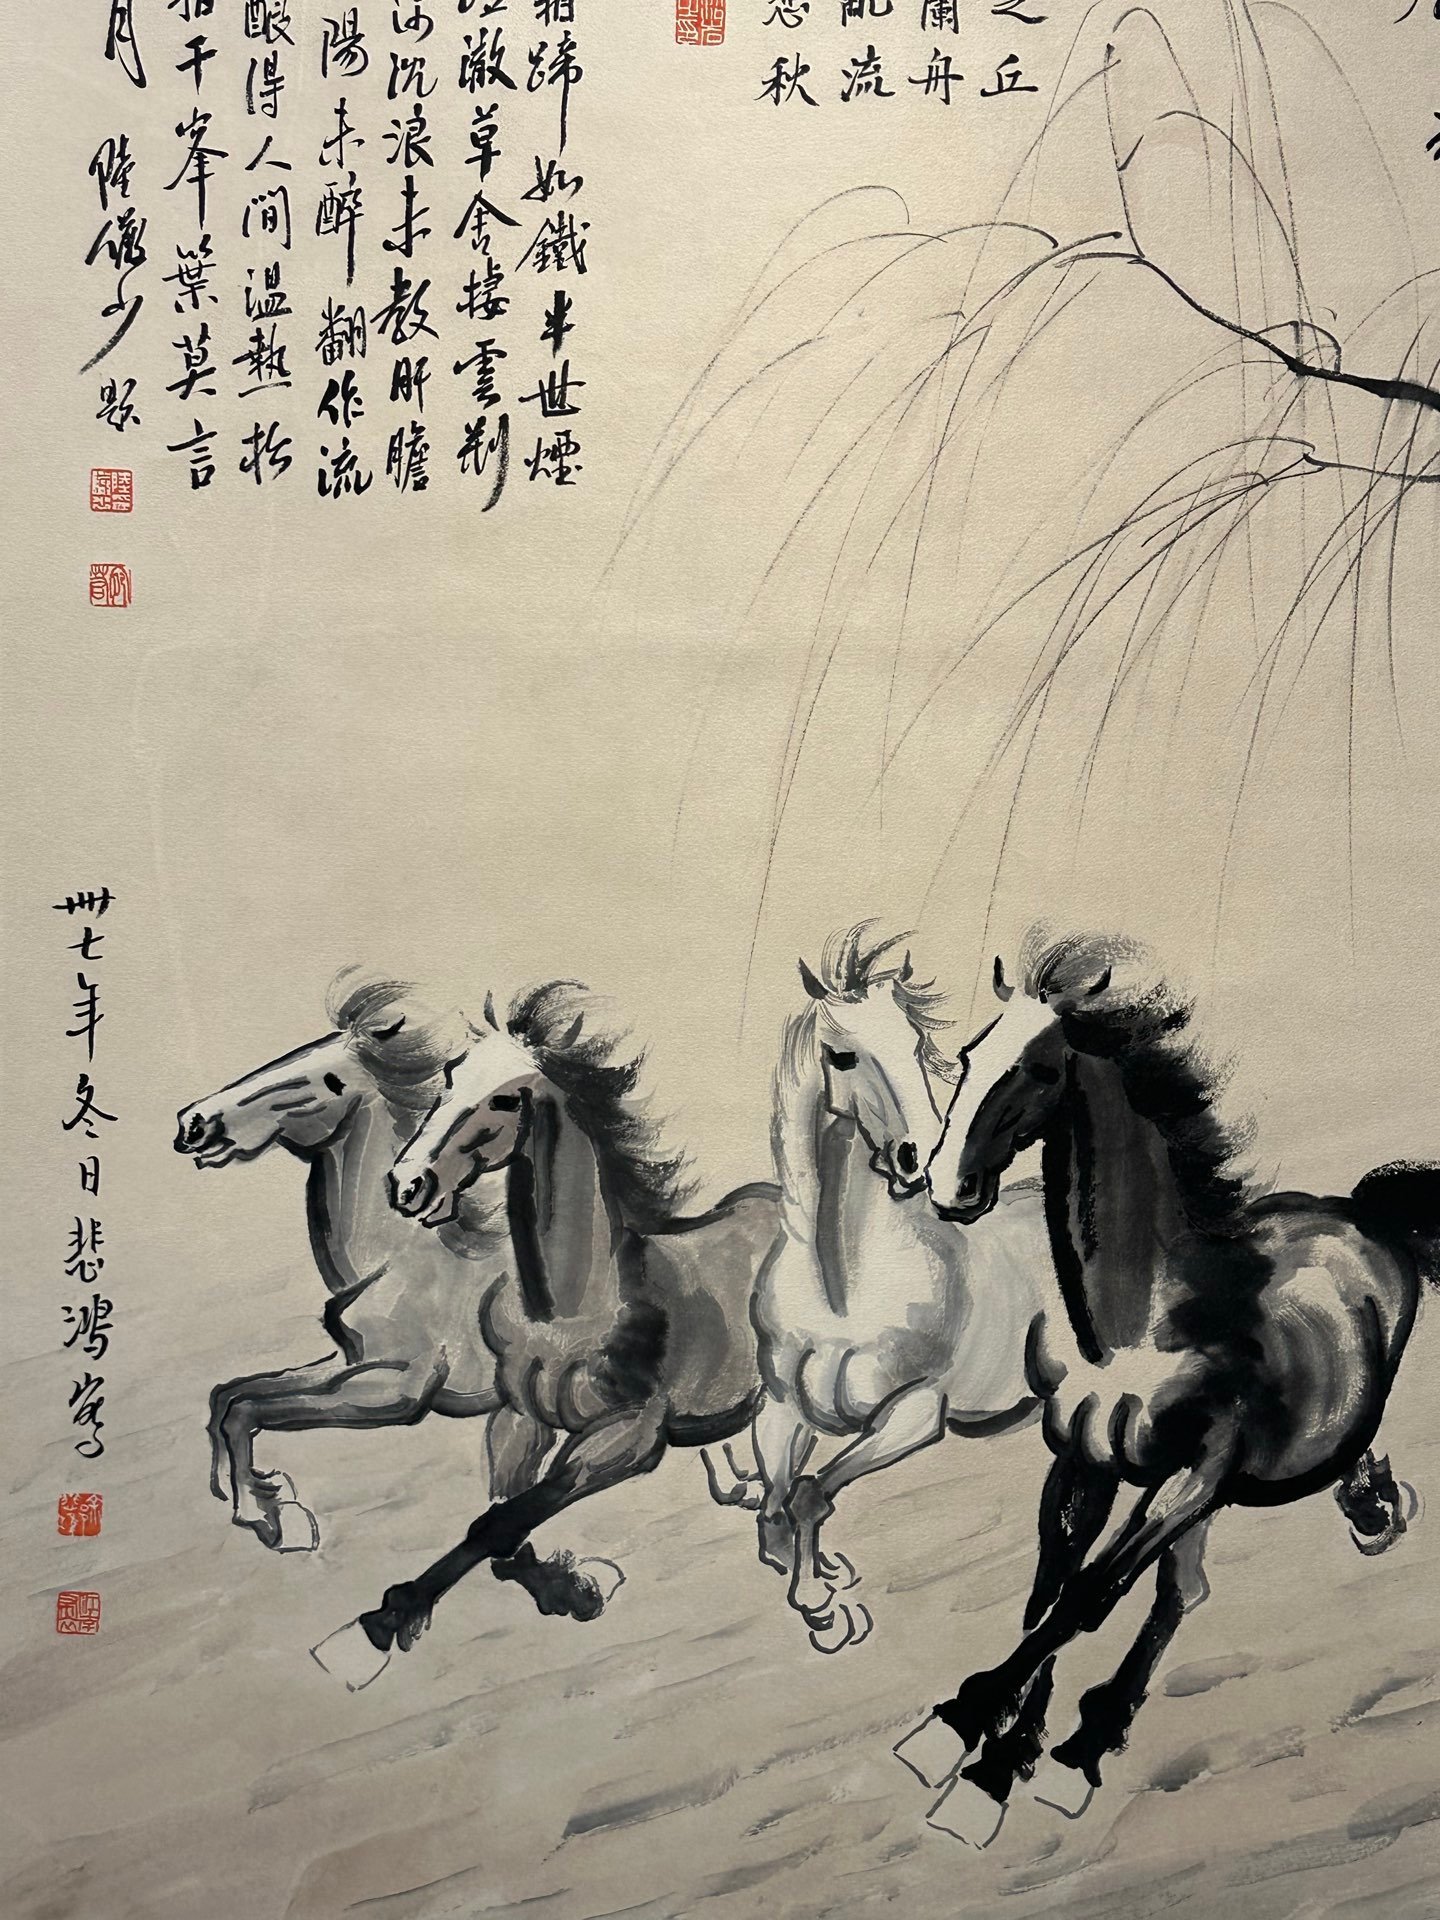 之丘
蘭舟
亂流
秋
霜蹄如鐵半世煙
澈草舍棲雲
沉浪未教肝膽
陽未醉翻作流
釀得人間溫熱
指千峯葉莫言
月 陸儼少題
卅七年冬日悲鴻寫